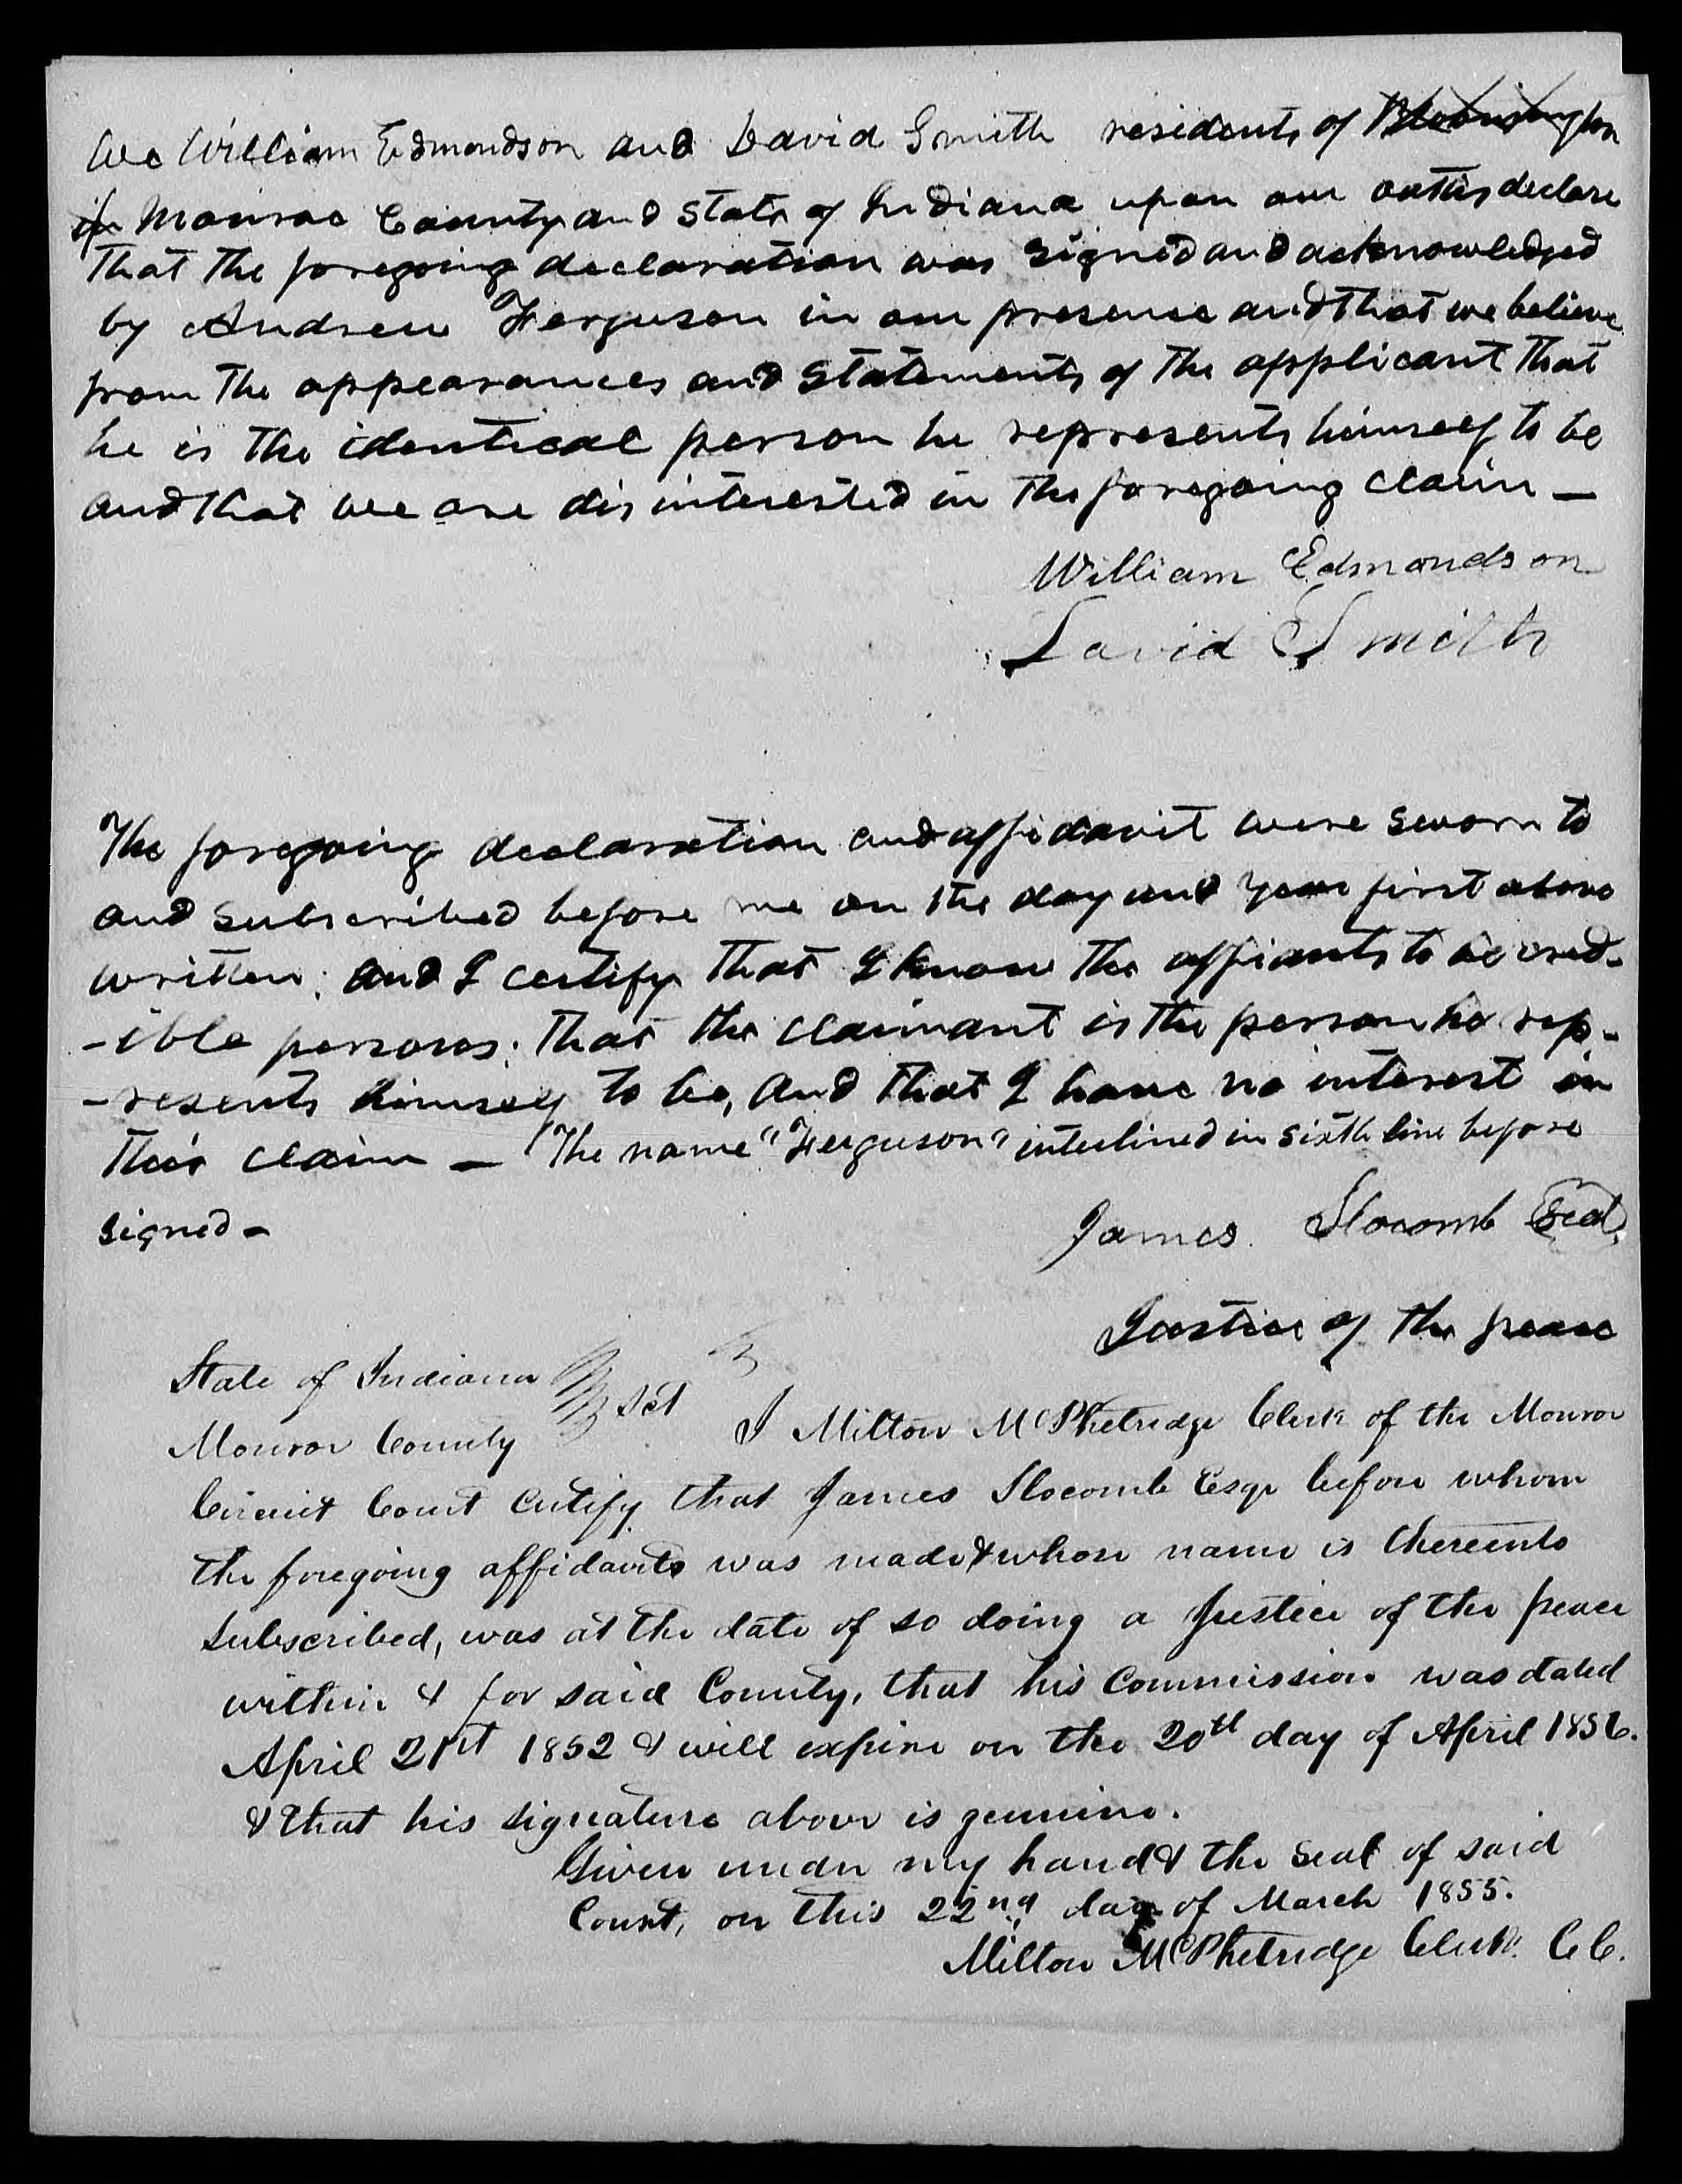 We William Edmondson and David Smith residents of Bloomington
in Monroe County and State of Indiana upon our oaths declare
That The foregoing declaration was signed and acknowledged
by Andrew Ferguson in our presence and that we believe
from The appearances and statements of The applicant That
he is The identical person he represents himself to be
and that we are disinterested in The foregoing claim —
William Edmondson
David Smith
The foregoing declaration and affidavit were sworn to
and subscribed before me on the day and year first above
written; and I certify That I know The affiants to be cred-
-ible persons; That the claimant is the person he rep-
-resents himself to be, and that I have no interest in
this claim — The name "Ferguson" interlined in sixth line before
signed —
James Slocomb Seal
Justice of The peace
State of Indiana
Sct
Monroe County
I Milton McPhetridge Clerk of the Monroe
Circuit Court certify that James Slocomb Esqr before whom
the foregoing affidavits was made & whose name is thereunto
subscribed, was at the date of so doing a Justice of the peace
within & for said County, that his Commission was dated
April 21st 1852 & will expire on the 20th day of April 1856.
& that his signature above is genuine.
Given under my hand & the seal of said
Court, on this 22nd day of March 1855.
Milton McPhetridge Clerk. C.C.